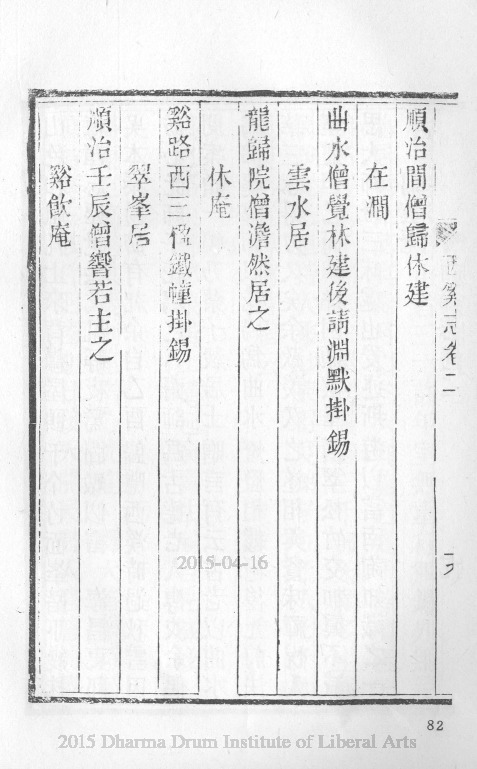 西谿志卷二
順治間僧歸休建
在澗
曲水僧覺林建後請淵默掛錫
雲水居
龍歸院僧澹然居之
休庵
谿路西三僧鐵幢掛錫
翠峯居
順治壬辰僧響若主之
谿飲庵
2015-04-16
82
2015 Dharma Drum Institute of Liberal Arts